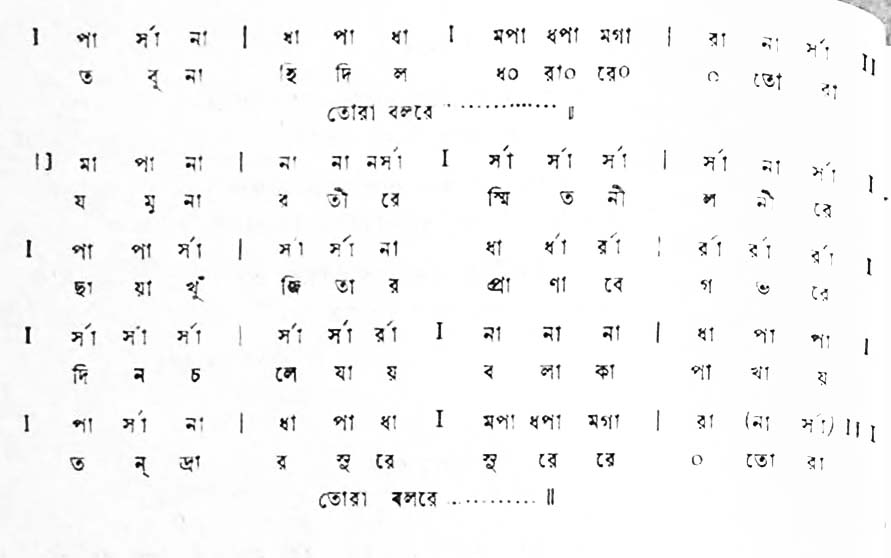 I পা র্সা না | ধা পা ধা I মপা ধপা মগা | রা না র্সা II
ত বু না হি দি ল ধ০ রা০ রে০ ০ তো রা
তোরা বলরে ............... ॥
II মা পা না | না না নর্সা I র্সা র্সা র্সা | র্সা না র্সা I
য মু না ব তী রে স্মি ত নী ল নী রে
I পা পা র্সা | র্সা র্সা না ধা র্ধা র্রা | র্রা র্রা র্রা I
ছা য়া খুঁ জি তা র প্রা ণা বে গ ভ রে
I র্সা র্সা র্সা | র্সা র্সা র্রা I না না না | ধা পা পা I
দি ন চ লে যা য় ব লা কা পা খা য়
I পা র্সা না | ধা পা ধা I মপা ধপা মগা | রা (না র্সা) II I
ত ন্ দ্রা র সু রে সু রে রে ০ তো রা
তোরা বলরে ............ ॥